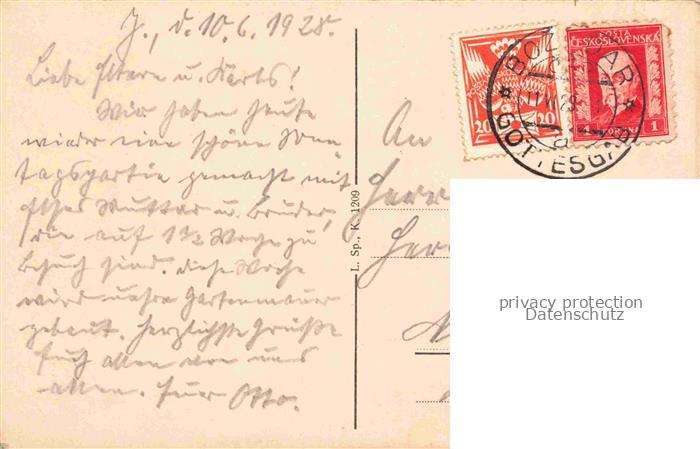 J., d. 10.6.1928.
Liebe Eltern u. Karls!
Wir haben heute
wieder eine schöne Sonn-
tagspartie gemacht mit
Mutter u. Bruder,
die auf 1½ Woche zu
Besuch sind. Diese Woche
wird unsre Gartenmauer
gebaut. Herzlichste Grüße
Euch allen von uns
allen. Euer Otto.
L. Sp., K. 1209
An
Herrn
POSTA
ČESKOSLOVENSKÁ
20 20
1
BOŽÍ DAR
GOTTESGAB
privacy protection
Datenschutz